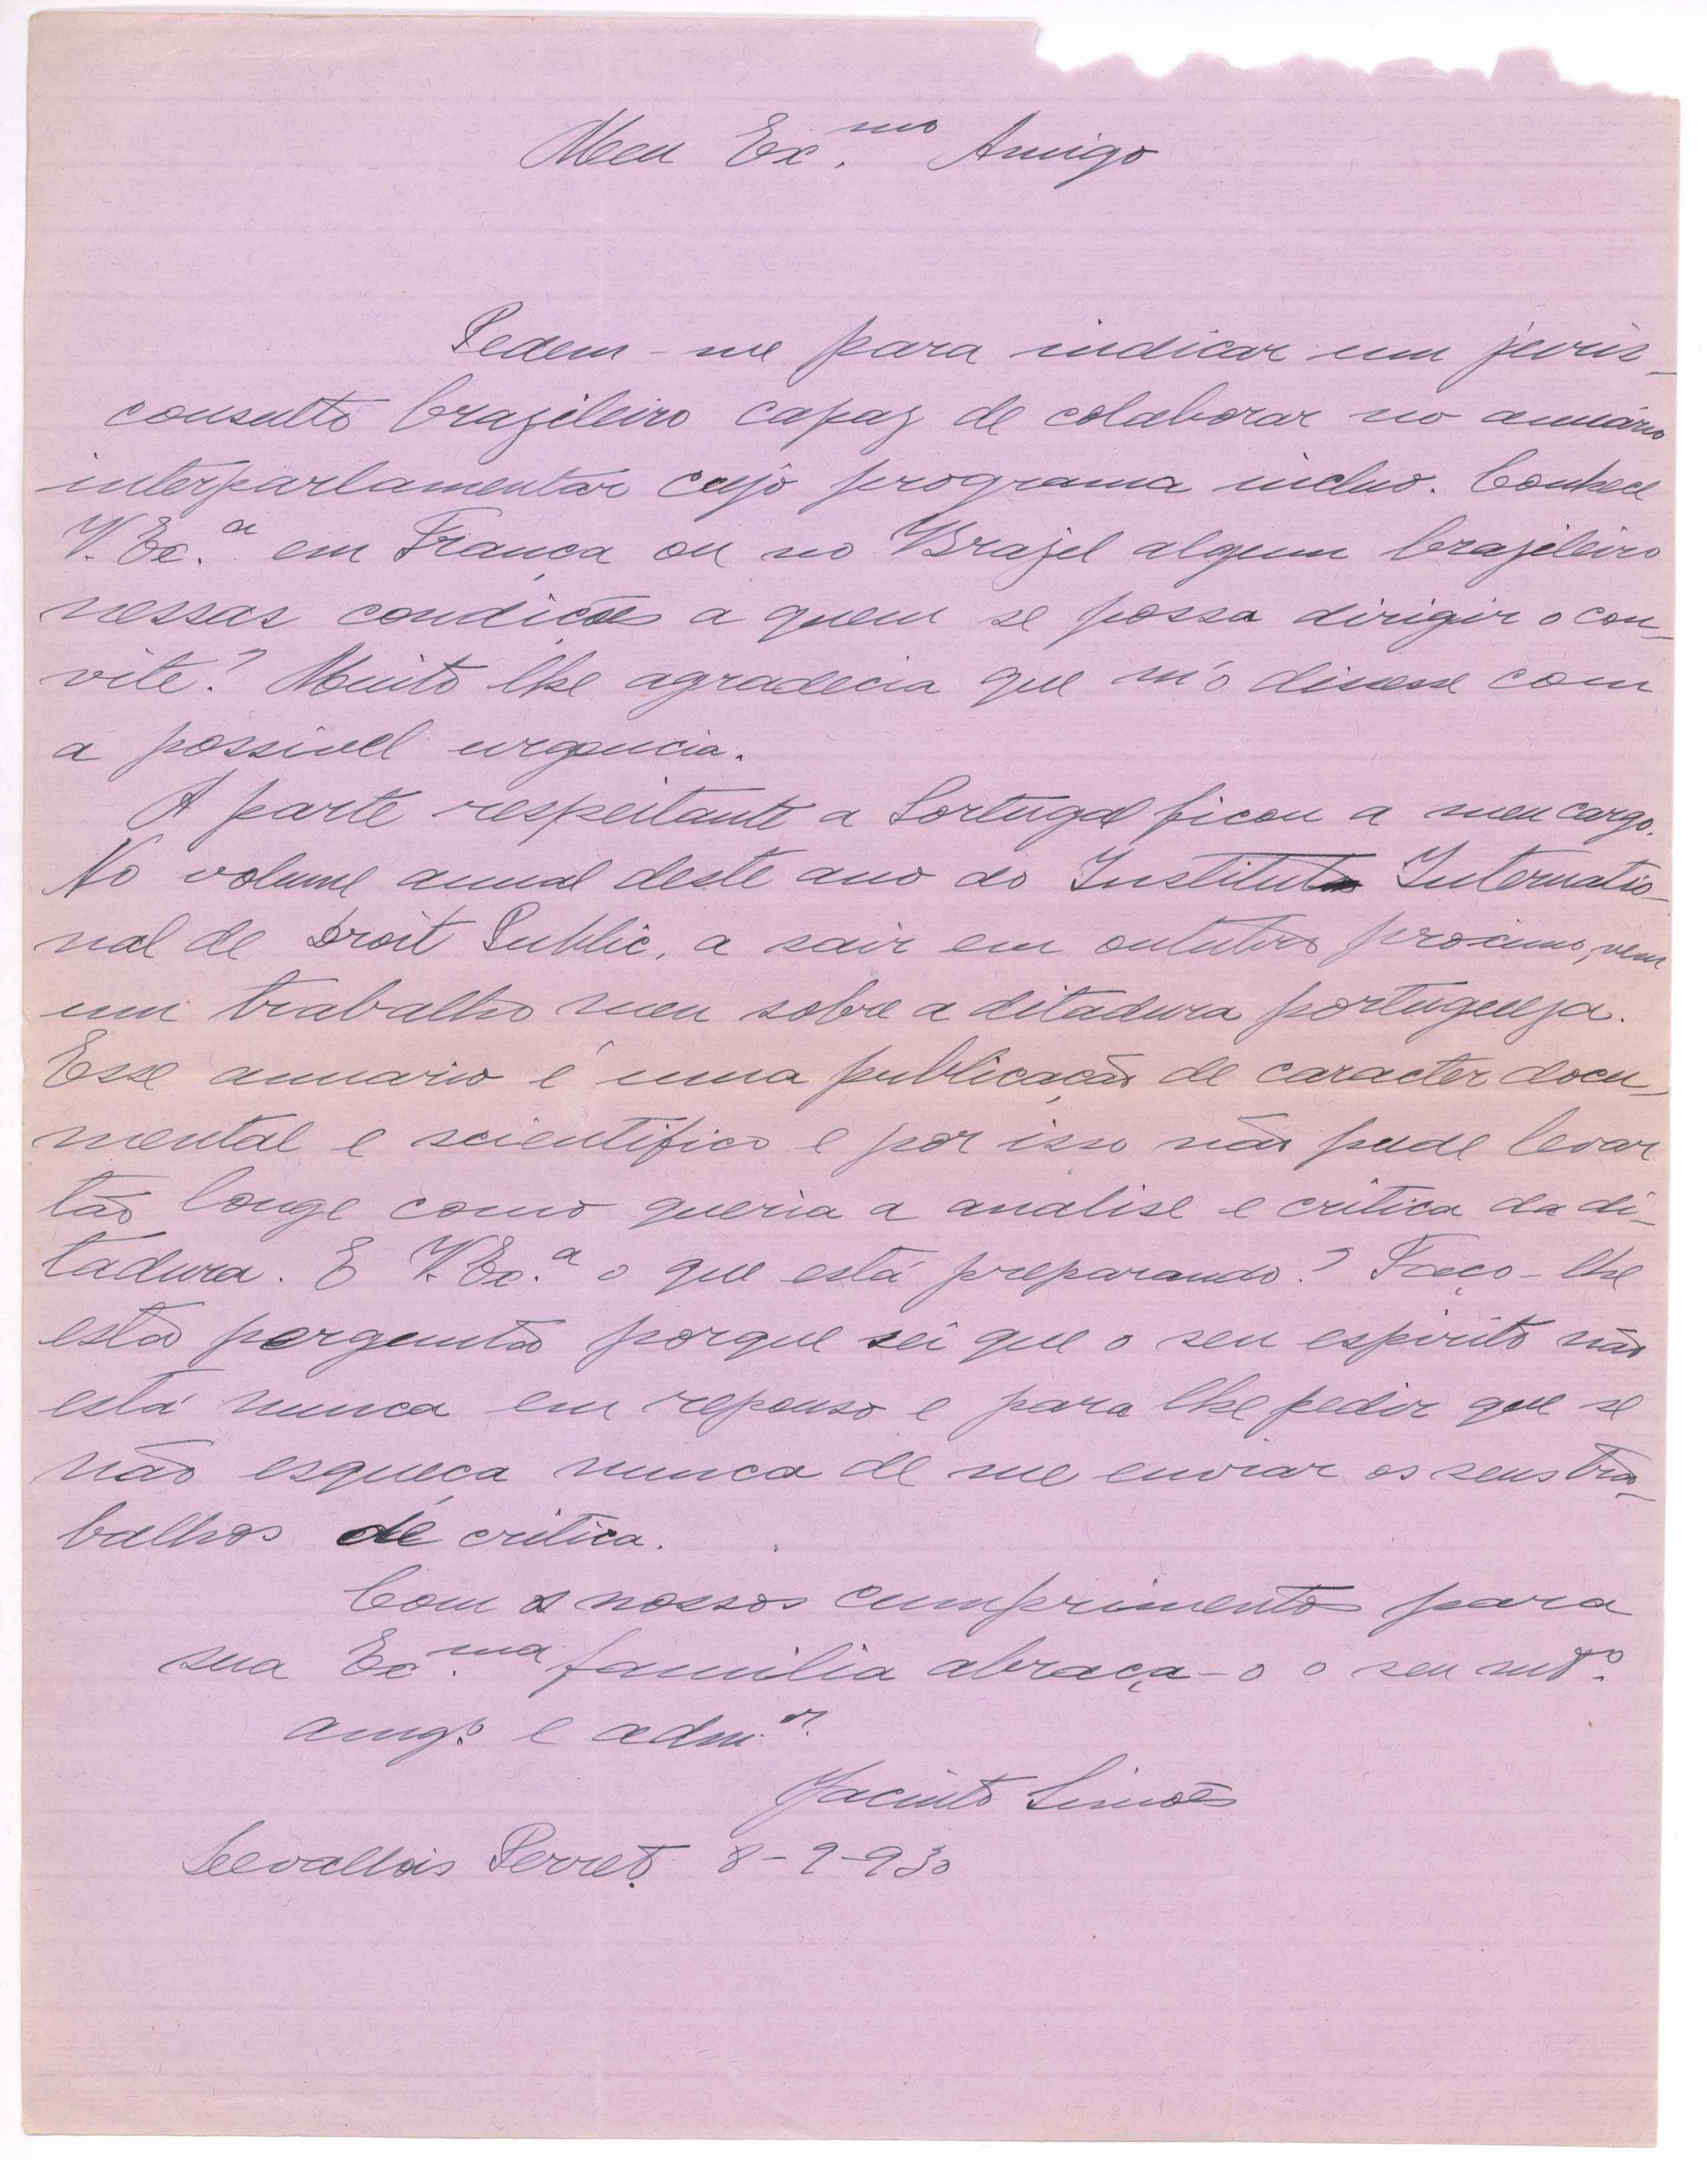 Meu Ex.mo Amigo
Pedem-me para indicar um juris-
consulto brazileiro capaz de colaborar no anuário
interparlamentar cujo programa incluo. Conhece
V. Ex.a em França ou no Brazil algum brazileiro
nessas condições a quem se possa dirigir o con-
vite? Muito lhe agradecia que m'o dissesse com
a possivel urgencia.
A parte respeitante a Portugal ficou a meu cargo.
No volume anual deste ano do Institut Internatio-
nal de Droit Public, a sair em outubro proximo, vem
um trabalho meu sobre a ditadura portugueza.
Esse anuario é uma publicação de caracter docu-
mental e scientifico e por isso não pude levar
tão longe como queria a analise e critica da di-
tadura. E V. Ex.a o que está preparando? Faço-lhe
esta pergunta porque sei que o seu espirito não
está nunca em repouso e para lhe pedir que se
não esqueça nunca de me enviar os seus tra-
balhos de critica.
Com os nossos cumprimentos para
sua Ex.ma familia abraça-o o seu mt.o
amg.o e adm.or
Jacinto Simões
Levallois Perret. 8-9-930